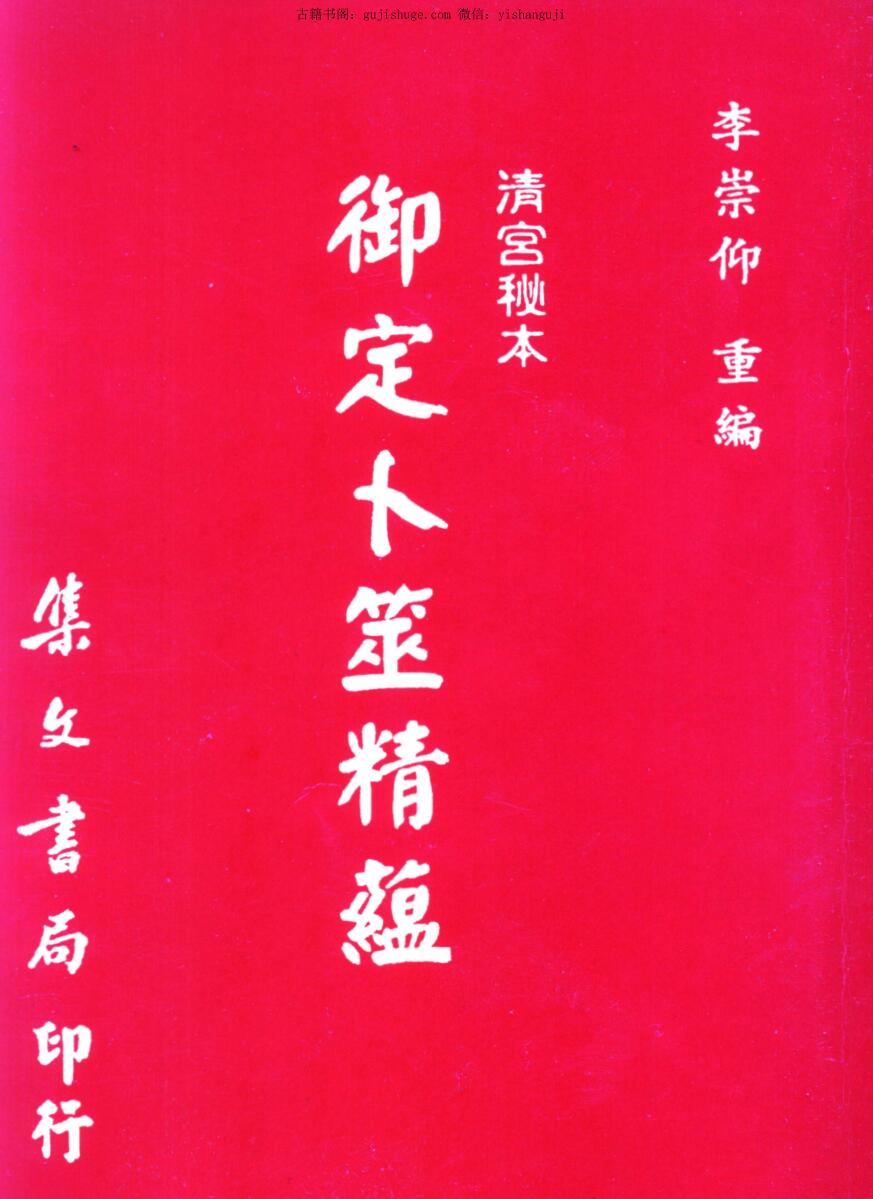 古籍书阁：gujishuge.com 微信：yishanguji
李崇仰 重編
清宮秘本
御定卜筮精蘊
集文書局印行